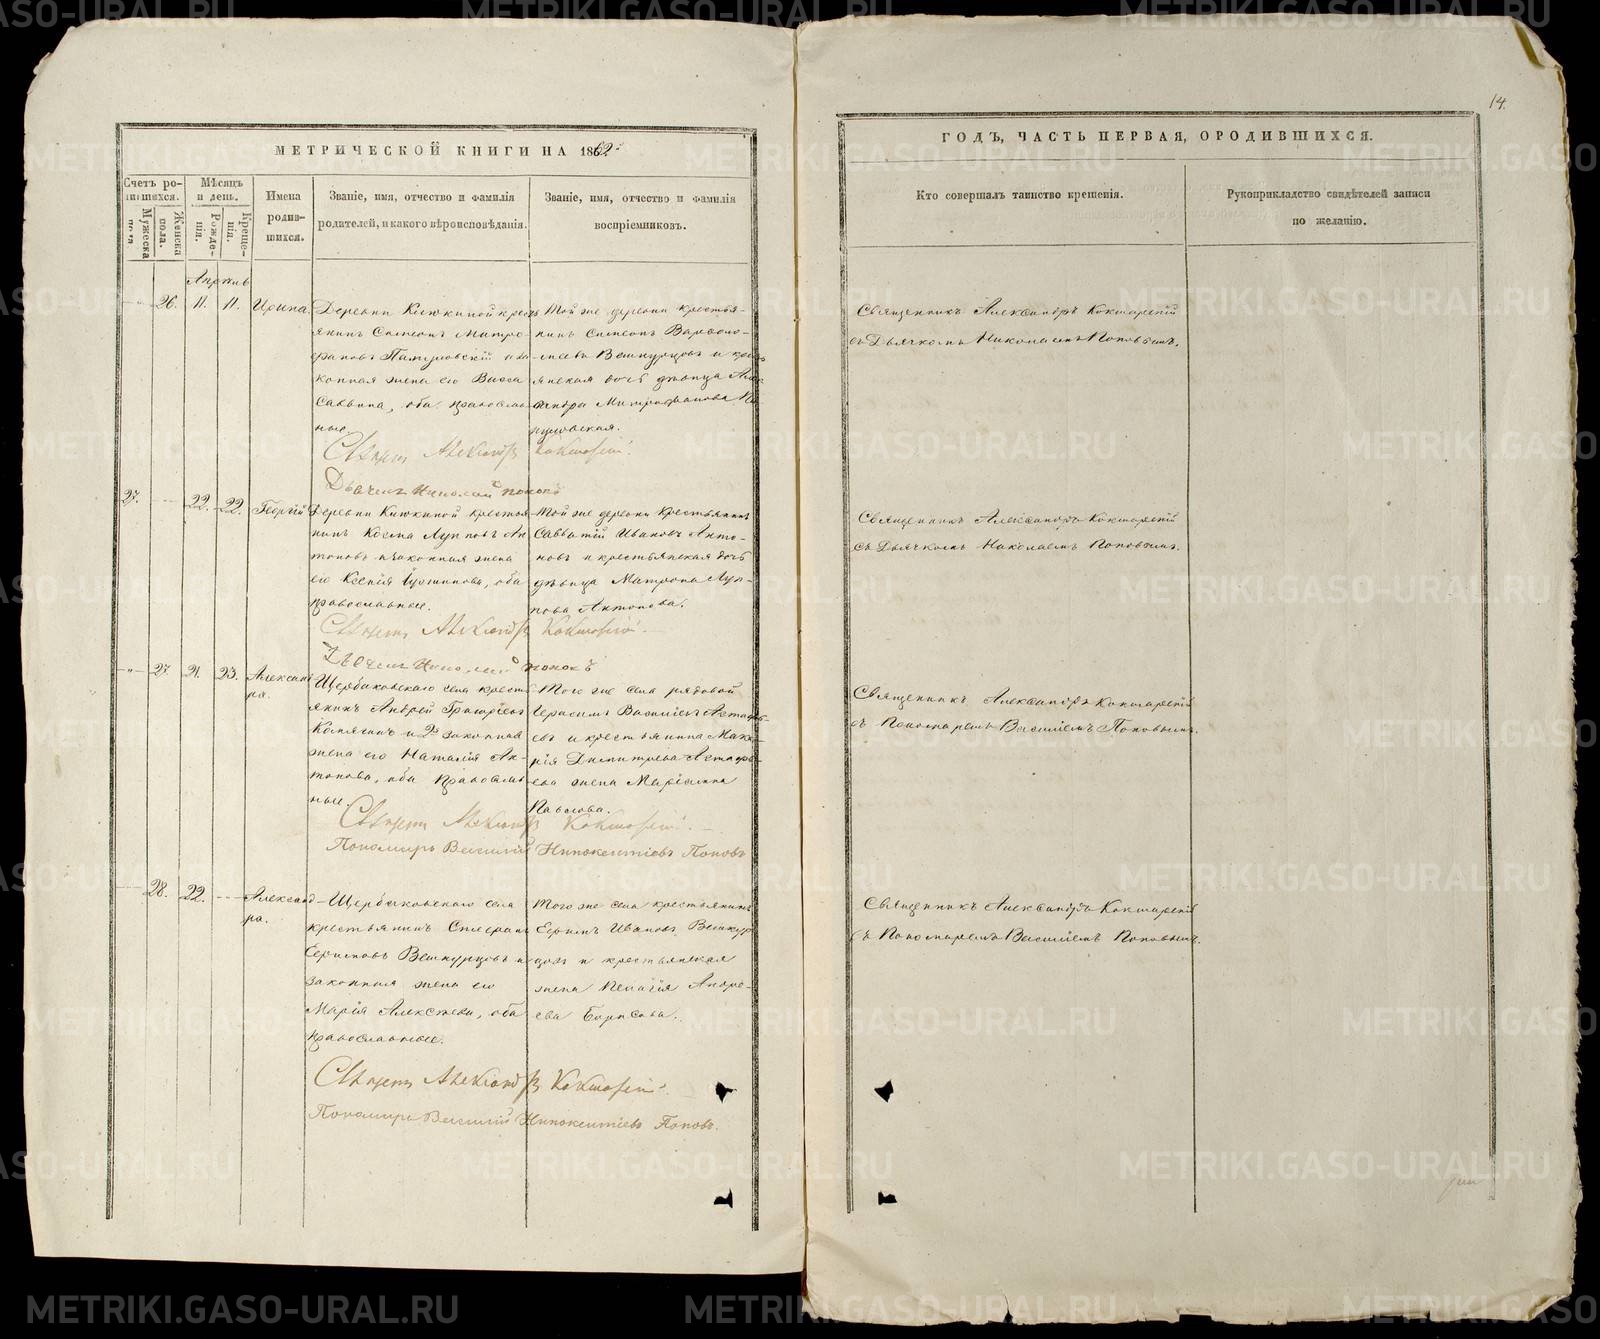 14.
МЕТРИЧЕСКОЙ КНИГИ НА 1862
ГОДЪ, ЧАСТЬ ПЕРВАЯ, О РОДИВШИХСЯ.
Счетъ родившихся.
Мужеска пола.
Женска пола.
Мѣсяцъ и день.
Рожденія.
Крещенія.
Имена родившихся.
Званіе, имя, отчество и фамилія
родителей, и какого вѣроисповѣданія.
Званіе, имя, отчество и фамилія
воспріемниковъ.
Кто совершалъ таинство крещенія.
Рукоприкладство свидѣтелей записи
по желанію.
Апрѣль
26. 11. 11. Ирина
Деревни крестьянинъ
Симеонъ Митрофановъ
и законная жена его Васса
Саввина, оба православные.
Той же деревни крестьянинъ
Симеонъ
Вешкурцовъ и крестьянская
дочь дѣвица Александра
Митрофанова
Священникъ Александръ Кокшарскій
съ Дьячкомъ Николаемъ Поповымъ.
Священ. Александръ Кокшарскій.
Дьячекъ Николай Поповъ
27. 22. 22. Георгій
Деревни крестьянинъ
Косма Лупповъ Антоновъ
и законная жена
его Ксенія Іустинова, оба
православные.
Той же деревни крестьянинъ
Савватій Ивановъ Антоновъ
и крестьянская дочь
дѣвица Матрона Луппова
Антонова.
Священникъ Александръ Кокшарскій
съ Дьячкомъ Николаемъ Поповымъ.
Священ. Александръ Кокшарскій.
Дьячекъ Николай Поповъ
27. 21. 23. Александра.
Щербаковскаго села крестьянинъ
Андрей Григорьевъ
и 2й законная
жена его Наталія Антонова,
оба православные.
Того же села рядовой
Герасимъ Васильевъ Астафьевъ
и крестьянина
Димитріева Астафьева
жена Маріамна
Павлова.
Священникъ Александръ Кокшарскій
съ Пономаремъ Василіемъ Поповымъ.
Священ. Александръ Кокшарскій.
Пономарь Василій Иннокентіевъ Поповъ
28. 22. Александра.
Щербаковскаго села
крестьянинъ
Вешкурцовъ и
законная жена его
Марія Алексѣева, оба
православные.
Того же села крестьянинъ
Ефимъ Ивановъ Вешкурцовъ
и крестьянская
жена Пелагія Андреева
Борисова.
Священникъ Александръ Кокшарскій
съ Пономаремъ Василіемъ Поповымъ.
Священ. Александръ Кокшарскій.
Пономарь Василій Иннокентіевъ Поповъ.
METRIKI.GASO-URAL.RU